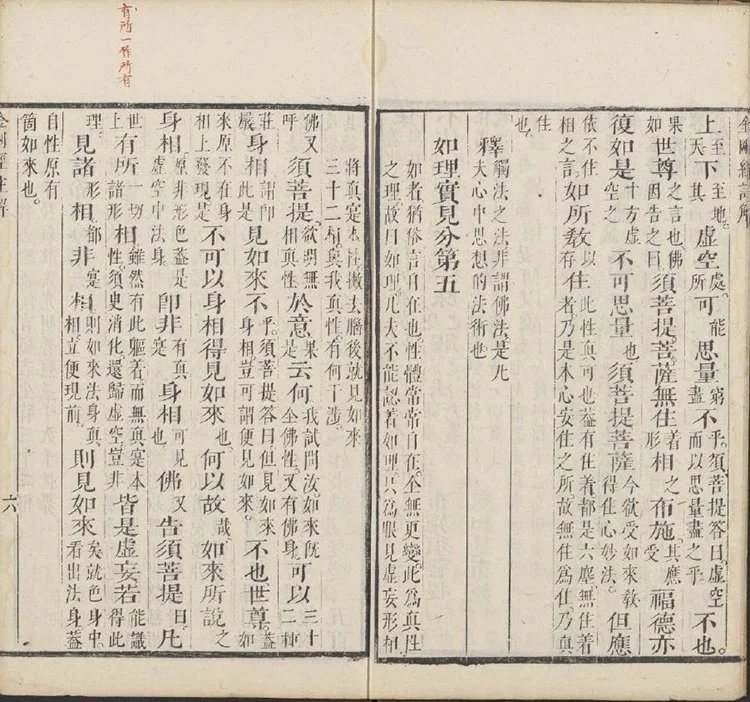 上至天下至地。其虛空處所可能思量窮盡不乎。須菩提答曰。虛空而以思量盡之乎不也。
果如世尊之言也。佛因告之曰須菩提菩薩無住着形相之布施。其應受福德亦
復如是十方虛空之不可思量也須菩提菩薩今欲受如來教得住心妙法。但應
依不住相之言如所教以存住此性真可也。蓋有住着都是六塵。無住着者乃是本心安住之所。故無住爲住。乃真
住也
釋觸法之法。非謂佛法。是凡夫心中思想的法術也
如理實見分第五
如者猶俗言自在也。性體常常自在。全無更變。此爲真性
之理。故曰如理。凡夫不能認着如理。只爲眼見虛妄形相
將真寔本性撇去腦後。就見如來
三十二相。與我真性。有何干涉。
佛又呼須菩提欲明無相真性於意果是云何我試問汝。如來既全佛性。又有佛身可以三十二種
莊嚴身相謂即此是見如來不乎。須菩提答曰。但見如來身相。豈可謂便見如來。不也世尊蓋如
來原不在身相上發現。是不可以身相得見如來也。何以故哉。如來所說之
身相原非形色。蓋虛空中法身即非有真寔身相也可見佛又告須菩提曰。凡
世上有所一切諸形相雖然有此軀着。而無真寔本性。須臾消化。還歸虛空。豈非皆是虛妄若能識得此
理。見諸形相都非寔相則如來法身真相。立便現前。則見如來矣。就色身中。看出法身。蓋
自性原有箇如來也。
六
有所一作所有